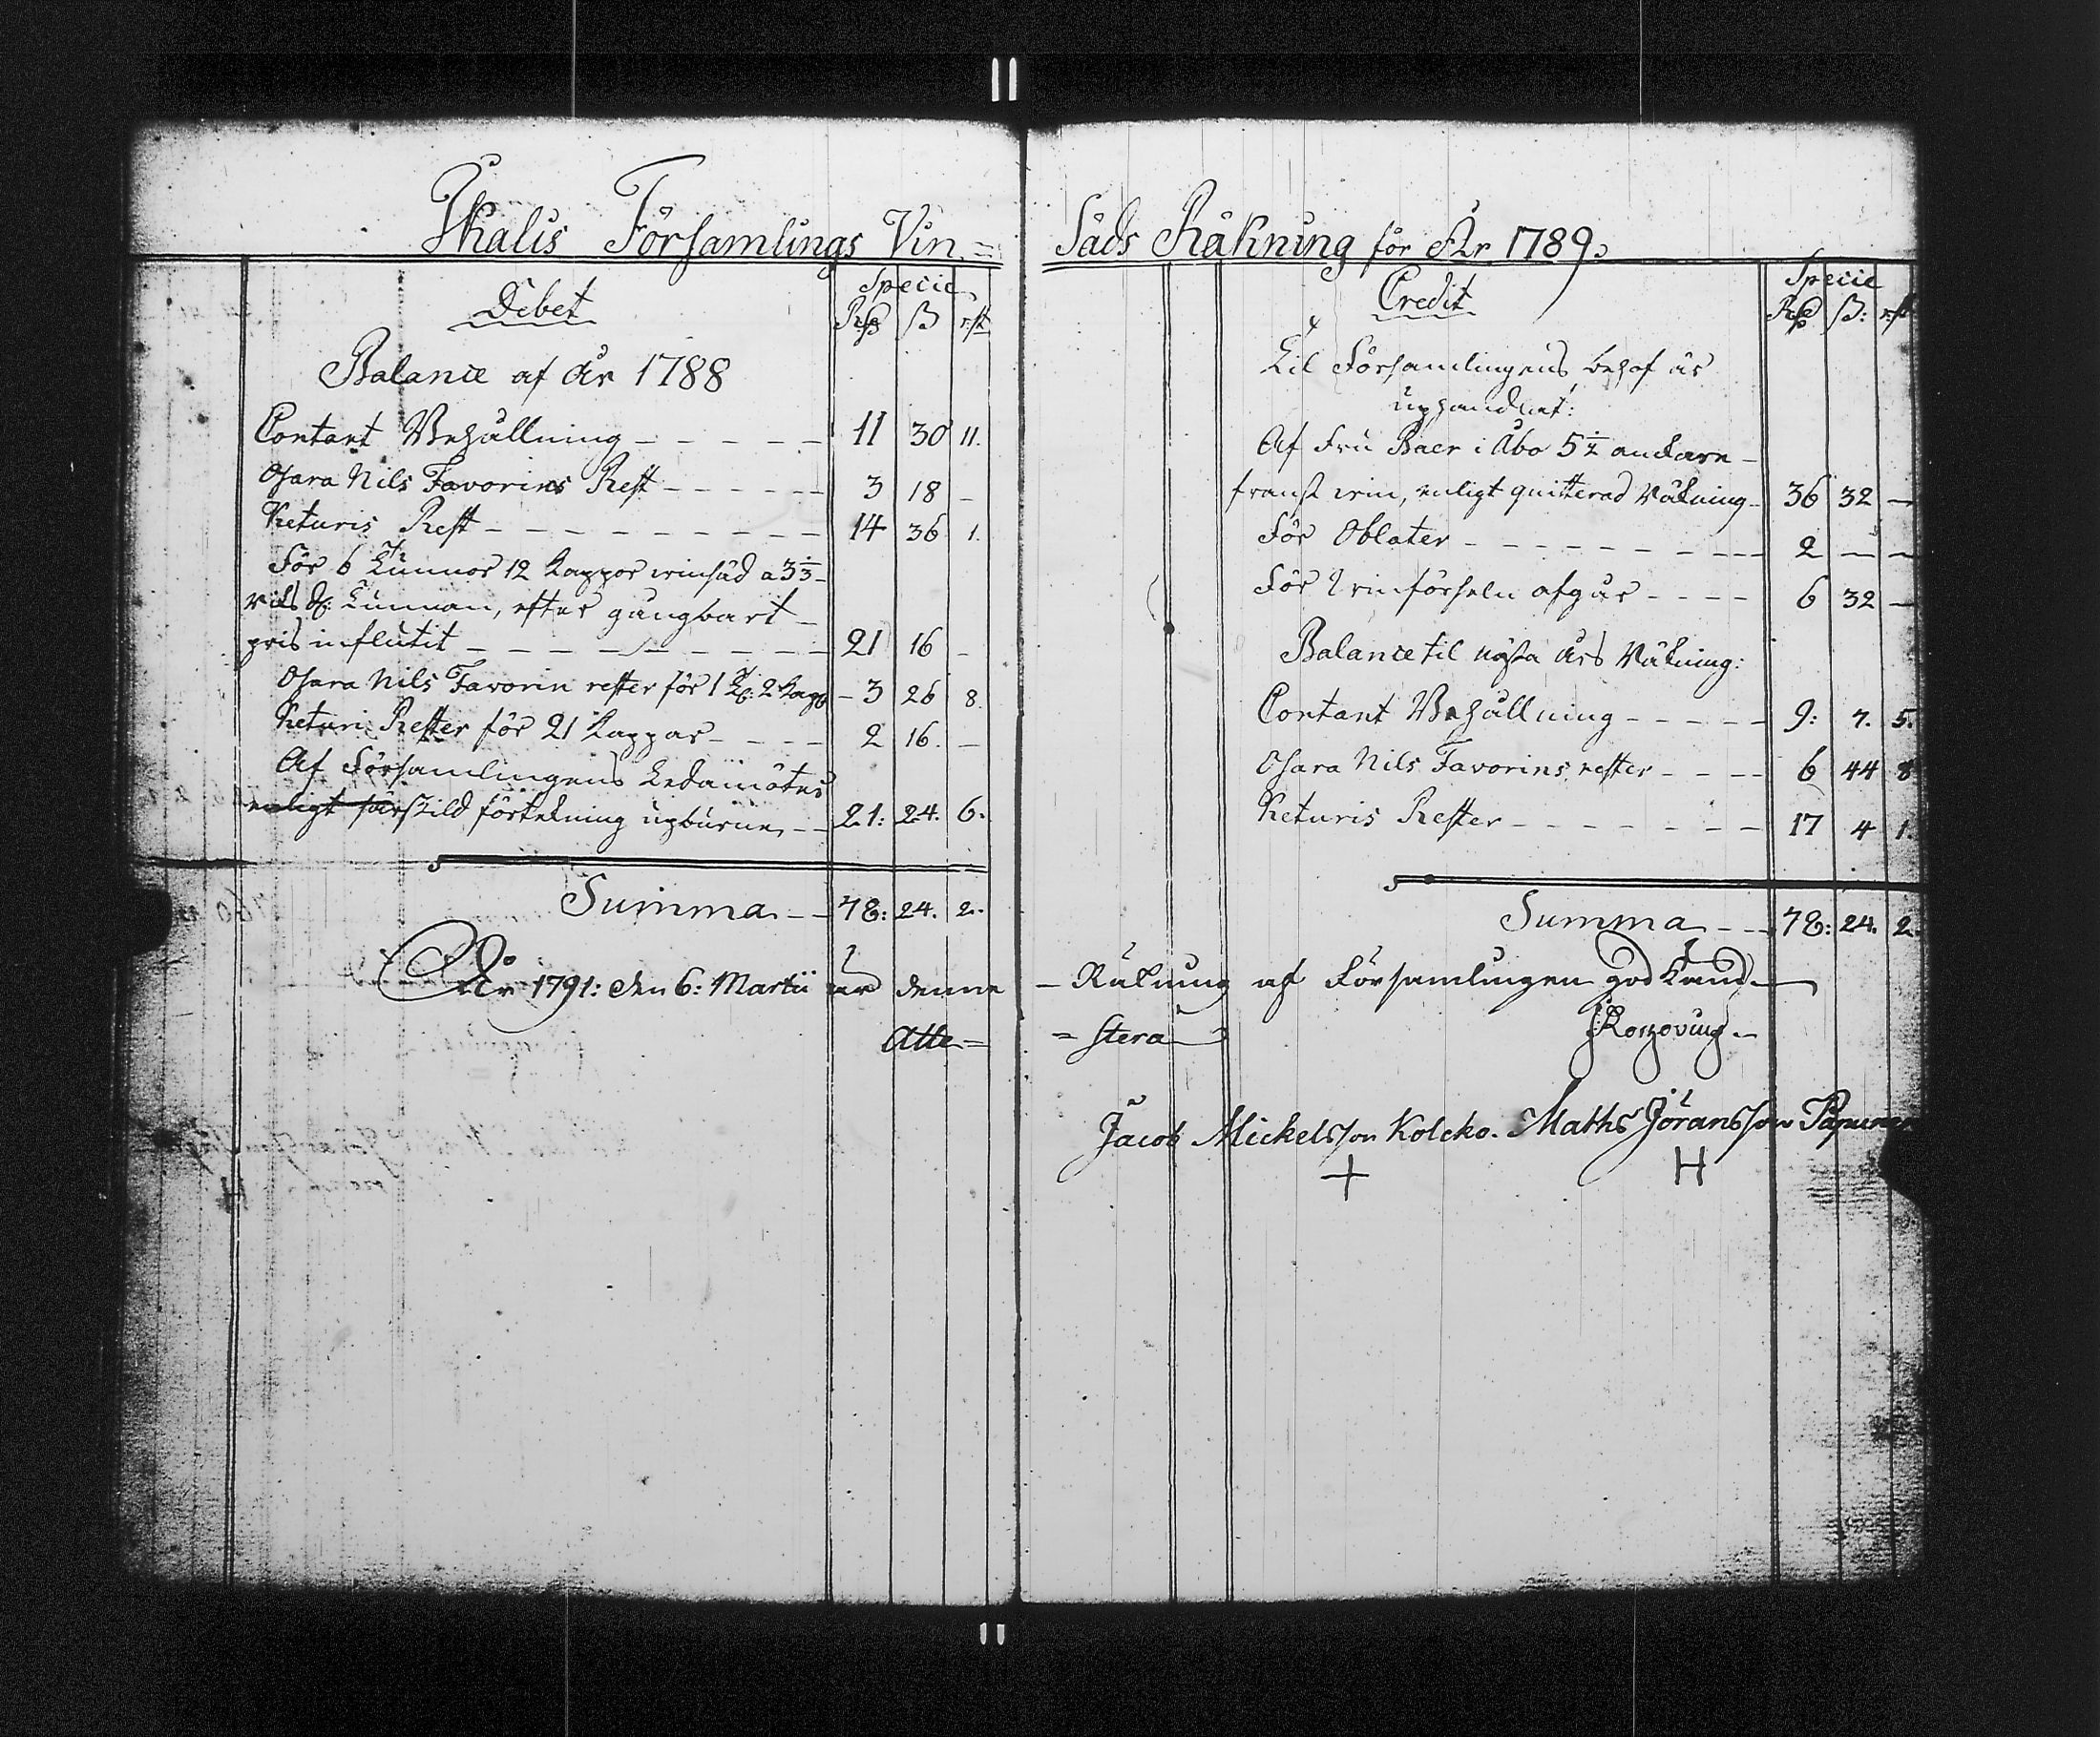 Ikalis Församlings Vin=
Debet
Specie
Rdr ß rst
Balance af år 1788
Contant Behållning 11 30 11.
Osara Nils Favorins Rest 3 18 –
Keturis Rest 14 36 1.
För 6 Tunnor 12 Kappor winsäd a 3 1/3
rds Tunnan, efter gångbart
pris influtit 21 16 –
Osara Nils Favorin rester för 1 T: 2 Kapp 3 26 8.
Keturi Rester för 21 Kappar 2 16. –
Af Församlingens Ledamöter
enligt särskild förtekning upburne 21: 24. 6.
Summa 78: 24. 2.
År 1791: den 6: Martii är denne
Atte=
Säds Räkning för År 1789.
Credit
Specie
Rdr ß: rst
Til Församlingens behof är
uphandlat:
Af Fru Baer i Åbo 5 1/2 ankare
franst win, enligt quitterad Räkning 36 32 –
För Oblater 2 – –
För winförseln afgår 6 32 –
Balance til nästa års Räkning:
Contant Behållning 9: 7. 5.
Osara Nils Favorins rester 6 44 8
Keturis Rester 17 4 1.
Summa 78: 24. 2.
– Räkning af Församlingen god Känd.
=stera
Jacob Mickelsson Kolcko. Maths Jöransson
+ H